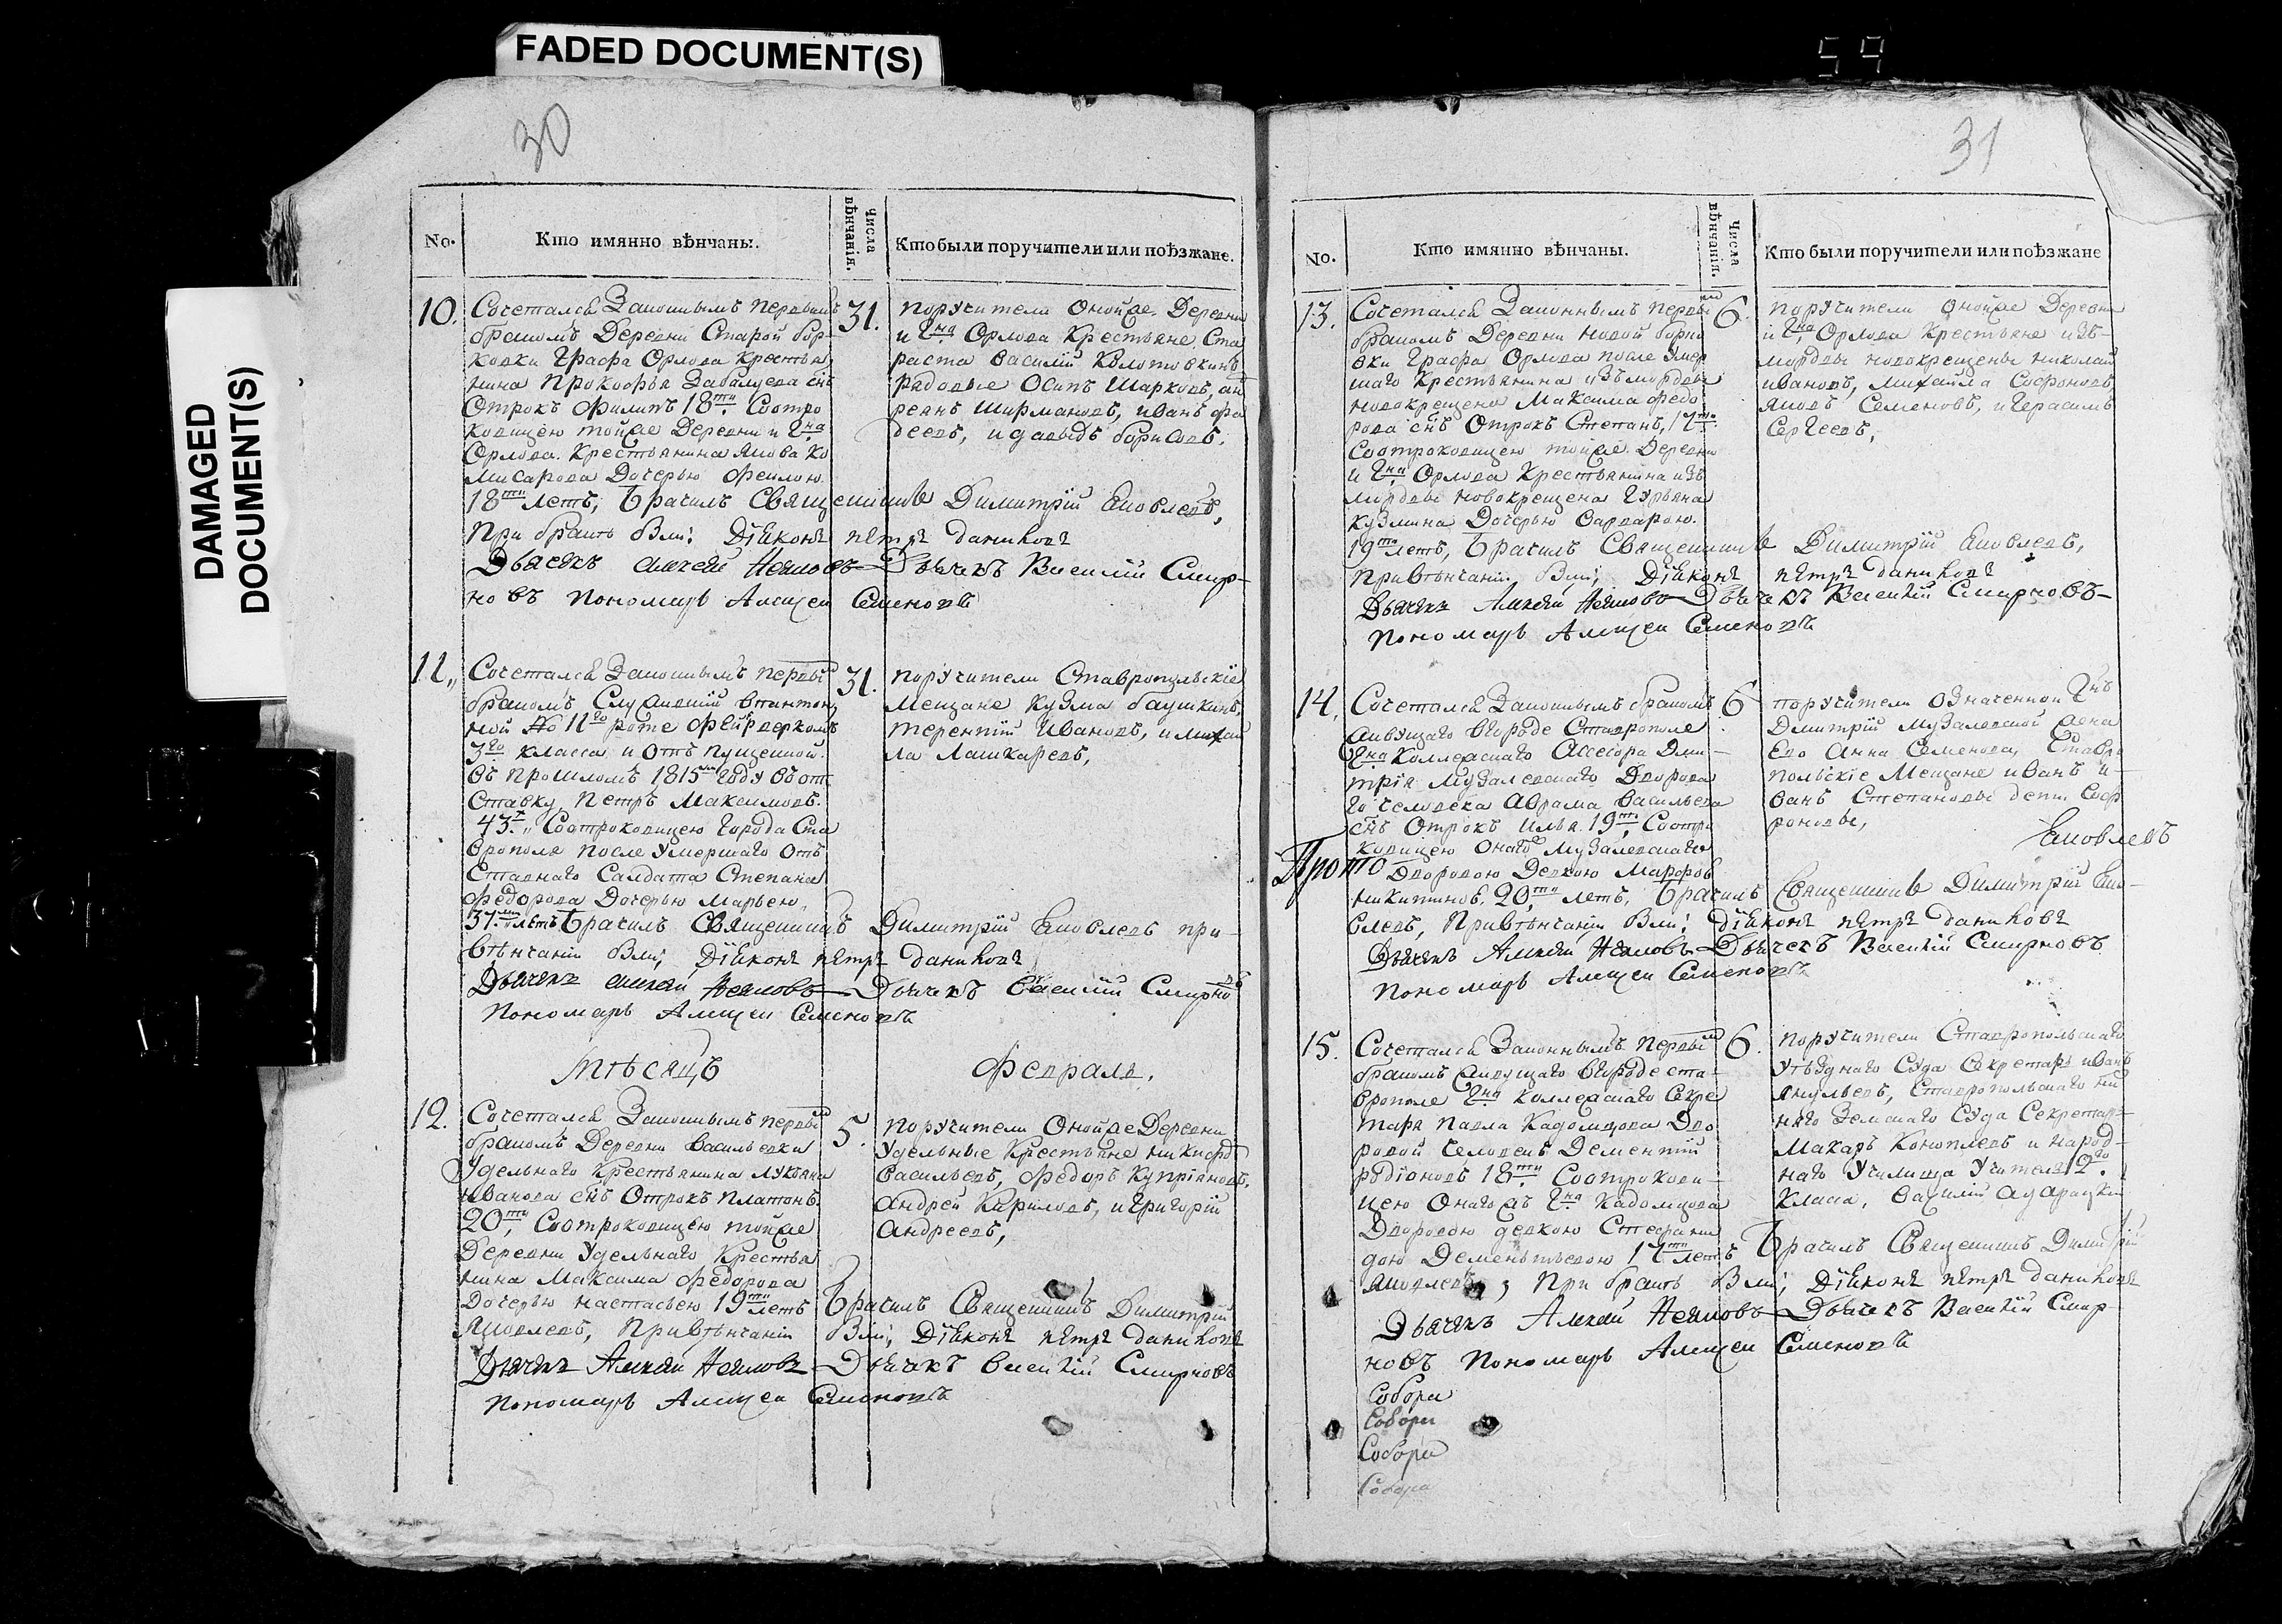 FADED DOCUMENT(S)
DAMAGED
DOCUMENT(S)
59
30
No.
Кто имянно вѣнчаны.
Числа
вѣнчанія.
Кто были поручители или поѣзжане.
10.
Сочетался Законнымъ первымъ
бракомъ Деревни Старой бор-
ковки Графа Орлова крестья
нина Прокофья Забалуева снъ
Отрокъ Филипъ 18ти Соотро
ковицею тойже Деревни и Гна
Орлова Крестьянина Якова Ко
мисарова Дочерью Феклою
18ти летъ, Брачилъ Священникъ Димитрій Яковлевъ,
При бракѣ были Діаконъ петръ
Дьячекъ Алексей Неяловъ Дьячекъ Василій Смир-
новъ Пономарь Алексеи Семеновъ
31.
поручители Онойже Деревни
и Гна Орлова Крестьяне Ста
раста Василій Колотовкинъ
рядовые Осипъ Шарковъ, ан
реянъ Ширмановъ, иванъ фа
деевъ, и давыдъ борисовъ.
11.
Сочетался Законнымъ первы
бракомъ Служившій
ной No 11го роте Фейрверкомъ
3го класса и Отпущенной
въ прошломъ 1815м году въ от
ставку Петръ Максимовъ.
43. Соотроковицею Города Ста
врополя после Умершаго От
ставнаго Салдата Степана
Федорова Дочерью Марьею,
37ми летъ Брачилъ Священникъ Димитрій Яковлевъ при
вѣнчаніи были Діаконъ петръ
Дьячекъ Алексей Неяловъ Дьячекъ Василій Смирно
въ
Пономарь Алексеи Семеновъ
31.
поручители Ставропольскіе
Мещане Кузма баушкинъ,
терентій Ивановъ, и михай
ла Лашкаревъ,
Мѣсяцъ Февраль.
12.
Сочетался Законнымъ первы
бракомъ Деревни Васильевки
Удельнаго Крестьянина Лукьяна
Иванова снъ Отрокъ Платонъ.
20ти Соотроковицею тойже
Деревни Удельнаго Крестья
нина Максима Федорова
Дочерью настасьею 19ти летъ Брачилъ Священникъ Димитрій
Яковлевъ, Привѣнчаніи были Діаконъ петръ
Дьячекъ Алексей Неяловъ Дьячекъ Василій Смирновъ
Пономарь Алексеи Семеновъ
5.
Поручители Онойже Деревни
Удельные Крестьяне никифоръ
Васильевъ, Федоръ Купріяновъ,
Андрей Кириловъ, и григорій
Андреевъ,
31
No.
Кто имянно вѣнчаны.
Числа
вѣнчанія.
Кто были поручители или поѣзжане
13.
Сочетался Законнымъ первы
бракомъ Деревни новой борко
вки Графа Орлова после Умер
шаго Крестьянина изъ мордвы
новокрещена Максима Федо
рова снъ Отрокъ Степанъ, 17ти
Соотроковицею тойже Деревни
и Гна Орлова Крестьянина изъ
мордвы новокрещена Гурьяна
Кузмина Дочерью Варварою.
19ти летъ, Брачилъ Священникъ Димитрій Яковлевъ,
Привѣнчаніи были Діаконъ петръ
Дьячекъ Алексей Неяловъ Дьячекъ Василій Смирновъ
Пономарь Алексеи Семеновъ
6.
поручители Онойже Деревни
и Гна Орлова Крестьяне изъ-
мордвы новокрещены николай
ивановъ, михайла Софроновъ
яковъ Семеновъ, и герасимъ
Сергеевъ,
14.
Сочетался Законнымъ бракомъ
живущаго въ городе Ставрополе
Гна Коллежскаго Ассесора Дми-
трія Музалевскаго Дворова
го человека Аврама Васильева
снъ Отрокъ Илья 19ти Соотро
ковицею Онаго Музалевскаго
Прото
Дворовою Девкою Марфою
никитиной 20ти летъ, Брачилъ Священникъ Димитрій Яко-
влевъ, Привѣнчаніи были Діаконъ петръ
Дьячекъ Алексей Неяловъ Дьячекъ Василій Смирновъ
Пономарь Алексеи Семеновъ
6
поручители Означенной Гнъ
Дмитрій Музалевской жена
Его Анна Семенова, Ставро
польскіе Мещане иванъ и-
ванъ Степановы дети Соф
роновы,
Яковлевъ
15.
Сочетался Законнымъ первы
бракомъ живущаго въ городе Ста-
врополе Гна Коллежскаго Секре
таря Павла Кадомцова Дво
ровой Человекъ Дементій
родіоновъ 18ти Соотрокови-
цею Онагожъ Гна Кадомцова
Дворовою девкою Стефани
дою Дементьевою 17ти летъ Брачилъ Священникъ Димитрій
Яковлевъ, При бракѣ были Діаконъ петръ
Дьячекъ Алексей Неяловъ Дьячекъ Василій Смир-
новъ Пономарь Алексеи Семеновъ
6.
поручители Ставропольскаго
Уѣзднаго Суда Секретарь иванъ
Ставропольскаго ниж
няго Земскаго Суда Секретарь
Макаръ Коноплевъ и народ-
наго Училища Учитель 12го
Класса, Василій
Собори
Собори
Собори
Собора